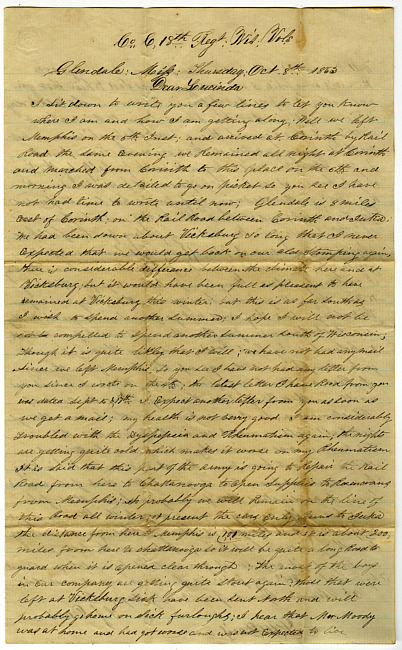 Co. C, 18th Regt. Wis. Vols
Glendale; Miss; Thursday Oct 8th 1863
Dear Lucinda
I sit down to write you a few lines to let you know
where I am and how I am getting along; Well we left
Memphis on the 5th Inst; and arrived at Corinth by Rail
Road the same evening we Remained all night at Corinth
and marched from Corinth to this place on the 6th and
morning I was detailed to go on picket so you see I have
not had time to write until now; Glendale is 8 miles
East of Corinth; on the Rail Road between Corinth and
We had been down about Vicksburg so long that I never
Expected that we would get back on our old Stomping again,
there is considerable difference between the climate here and at
Vicksburg but it would have been full as pleasant to have
remained at Vicksburg this winter but this is as far South as
I wish to spend another Summer, I hope I will not be
compelled to Spend another Summer South of Wisconsin,
though it is quite likely that I will; we have not had any mail
since we left Memphis, So you see I have not had any letter from
you since I wrote on the latest letter I have Recd from you
was dated Sept I Expect another letter from you as soon as
we get a mail; my health is not very good I am considerably
troubled with the Dyspepsia and Rheumatism again; the nights
are getting quite cold which makes it worse on my Rheumatism
It is said that this part of the army is going to Repair the Rail
Road from here to Chattanooga to open Supplies to Rosencrans
from Memphis; So probably we will Remain on the line of
this Road all winter; at present the cars only run to Iuka
the distance from here to Memphis is 101 miles and it is about 200
miles from here to Chattanooga so it will be quite a long Road to
guard when it is opened clear through; The most of the boys
in our company are getting quite stout again; those that were
left at Vicksburg Sick have been sent North and will
probably go home on Sick furloughs; I hear that Mr. Moody
was at home and had got worse and was not Expected to live